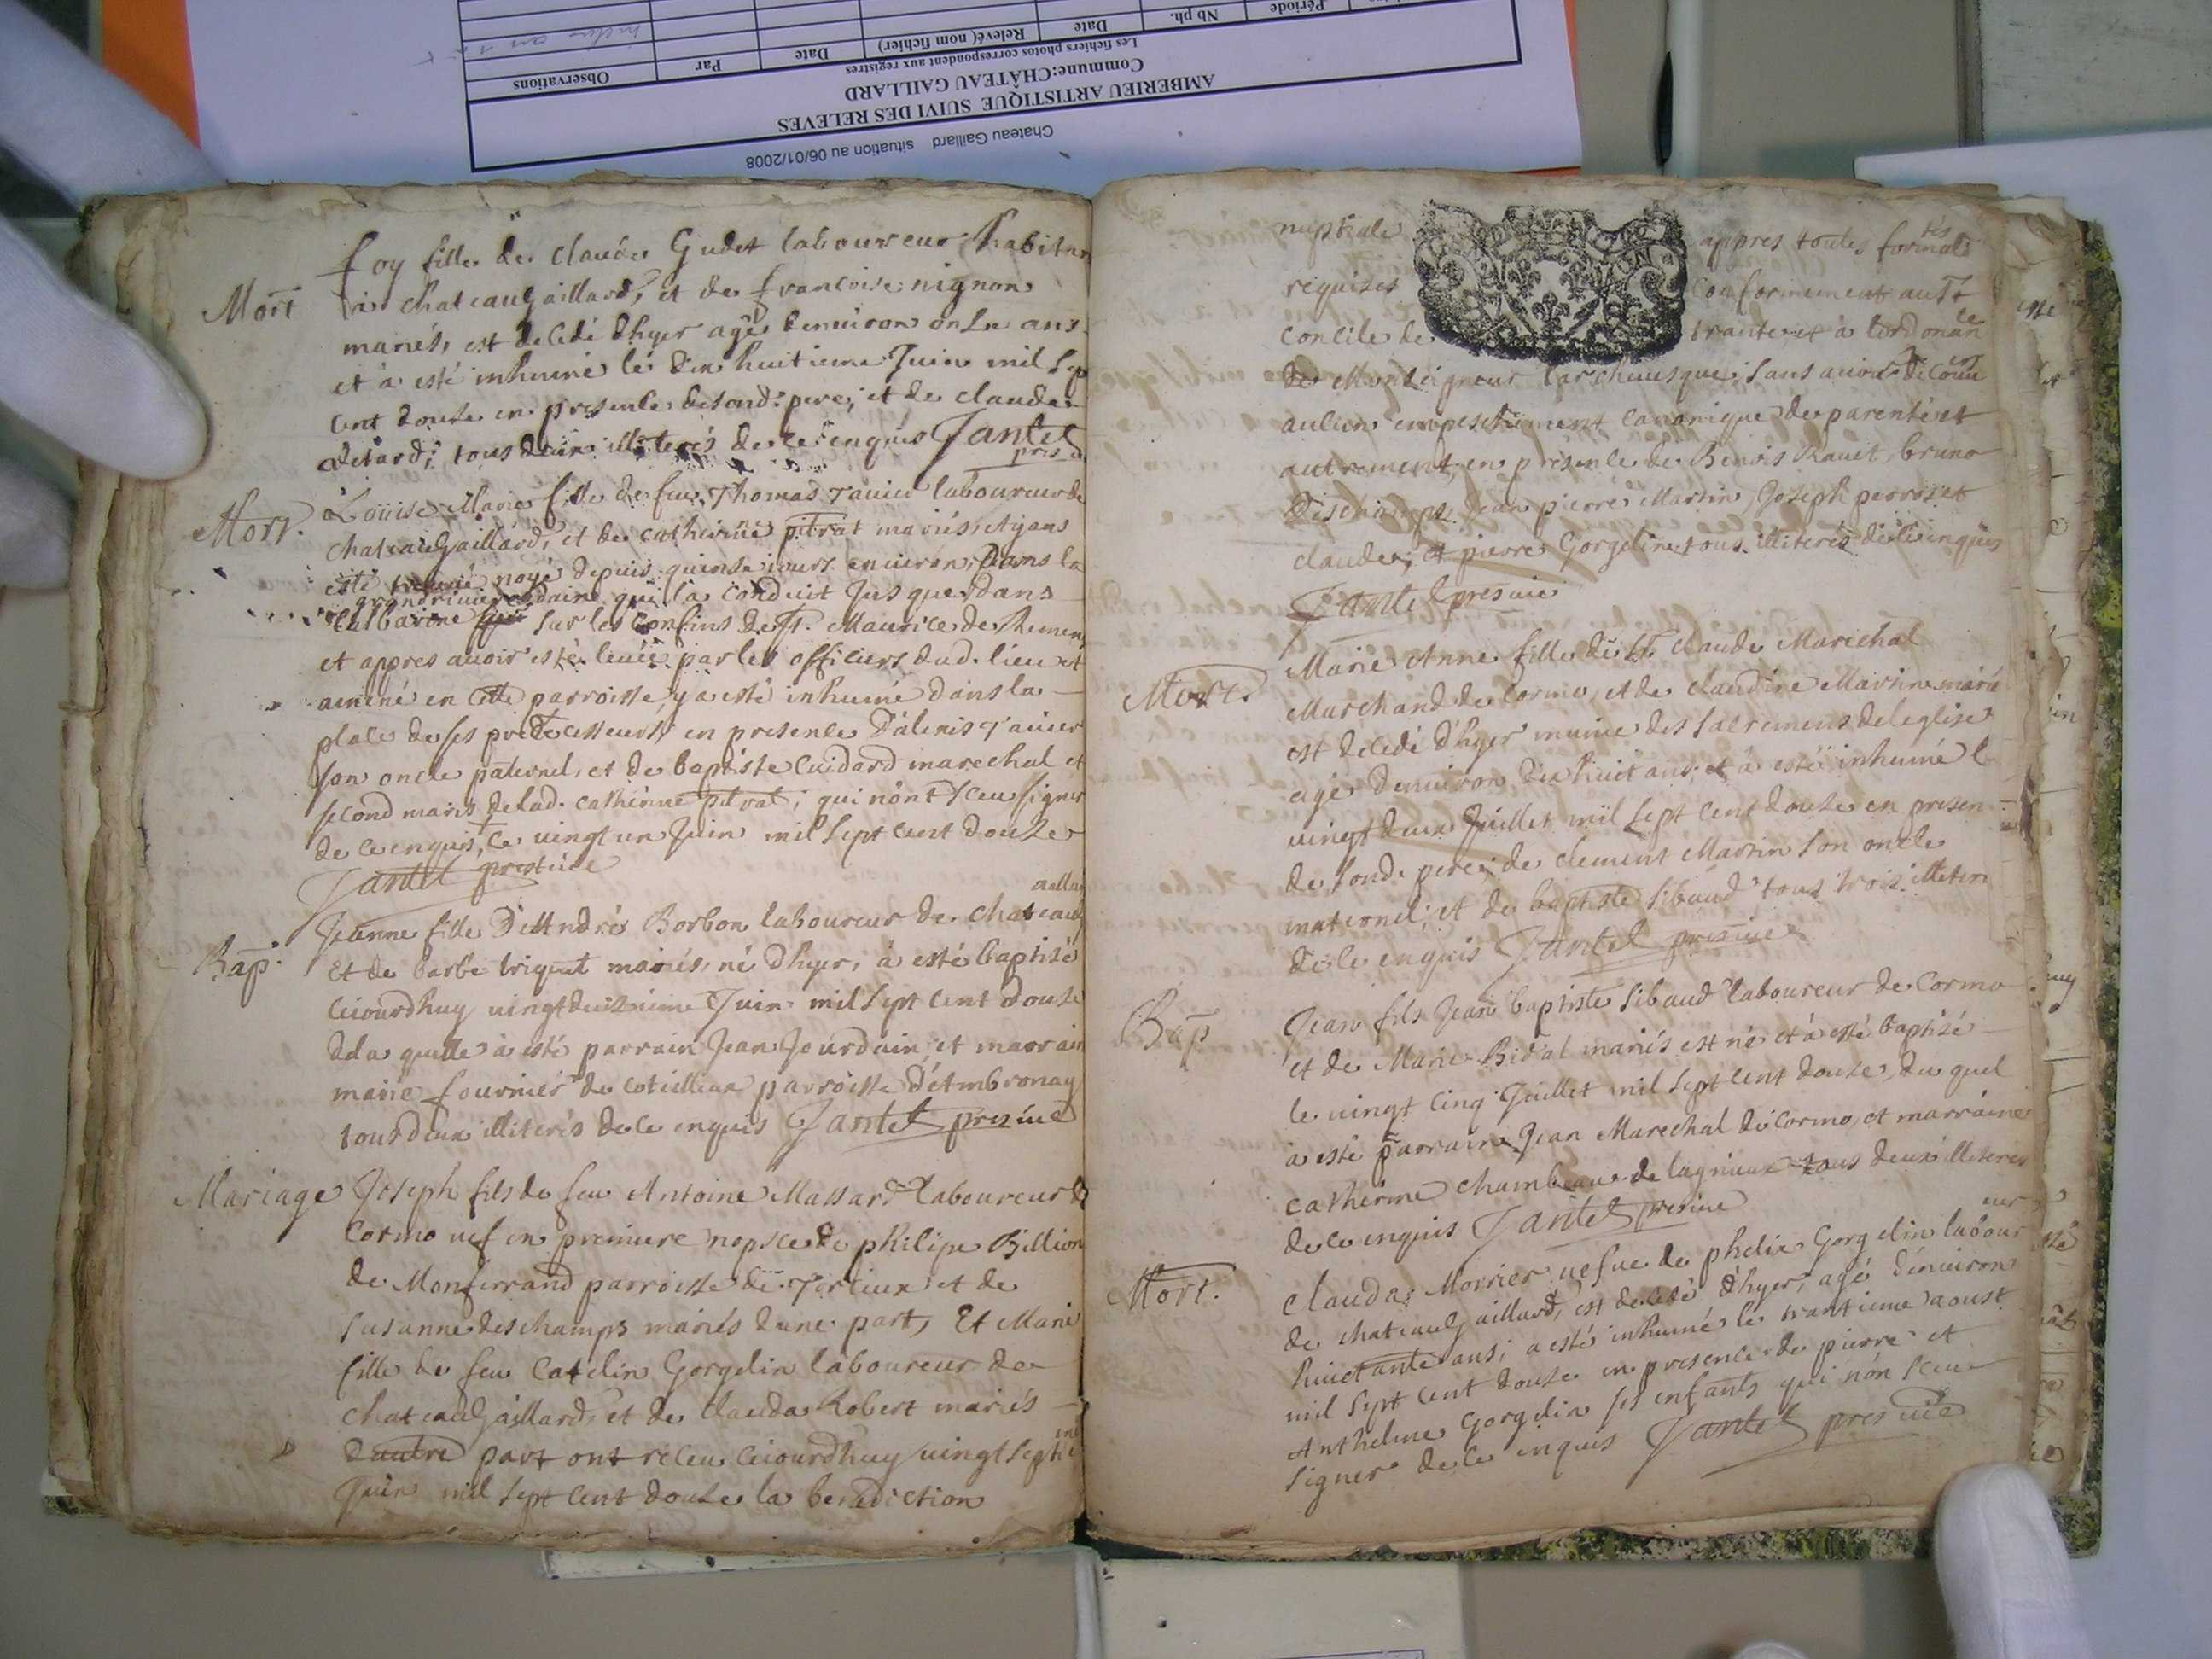 Période
Nb ph.
Date
Relevé( nom fichier)
Date
Par
Observations
Les fichiers photos correspondent aux registres
Commune:CHÂTEAU GAILLARD
AMBERIEU ARTISTIQUE SUIVI DES RELEVES
Chateau Gaillard situation au 06/01/2008
Mort
foy fille de claude Gudet laboureur habitan
à chateaugaillard, et de francoise nignon
mariés, est decedé dhyer agé denuiron onze ans
et à esté inhumé le dix huitieme Juin mil sep
cent douze en presence de sond. pere, et de claude
detard; tous deux illiterés de ce enquis Jantet
pres v
Mort.
Loüise Marie fille de feu Thomas Tauier laboureur de
chateaugaillard, et de catherine pitrat mariés, ayans
esté noyé depuis quinse iours enuiron, dans la
grand riuiere daine qui la conduit Jusque dans
sur les Confins de St. Maurice de Remen
et appres auoir esté leuée par les officiers dud. lieu et
amené en cette parroisse, y a esté inhumé dans la
place de ses predecesseurs, en presence D'alexis Tauier
son oncle paternel, et de baptiste cuidard marechal et
second maris de lad. catherine pitrat; qui n'ont sceu signer
de ce enquis, ce uingt un Juin mil sept cent douze
Jantet prestuice
Bap.
Jeanne fille D'Andre Borbon laboureur de chateaug
aillar
Et de barbe triquet mariés, né dhyer, à esté baptisé
ceiourdhuy uingtdeuxieme Juin mil sept cent douze
de la quelle à esté parrain Jean Jourdain, et marrain
marie fournier de cotellieux parroisse d'Ambronay
tous deux illiterés de ce enquis Jantet presuice
Mariage
Joseph fils de feu Antoine Massard laboureur de
Cormo uef en premiere nopsce de philipe Billion
de Monferrand parroisse de Torcieux et de
Susanne deschamps mariés dune part, Et Marie
fille de feu Catelin Gorgelin laboureur de
chateaugaillard, et de clauda Robert mariés
dautre part ont receu ceiourdhuy uingt septie
me
Juin mil sept cent douze la benediction
nuptiale appres toutes formali
tés
requises conformement au St
concile de trante et à lordonan
ce
de Monseigneur l'archeuesque, sans auoir decouu
ert
aulcun empeschement canonique de parenté et
autrement, en presence de Benois Rauet, bruno
Deschamps, Jean pierre Martin, Joseph perroset
claude, et pierre Gorgelin tous illiterés de ce enquis
Jantet presuice
Mort.
Marie Anne fille du Sr. claude Marechal
Marchand de Cormo, et de claudine Martin marié
est decedé d'hyer munie des sacremens de leglise
agé denuiron dix huit ans, et à esté inhumé l
uingt deux Juillet mil sept cent douze en presen
de sond. pere, de clement Martin son oncle
maternel, et de baptiste sibaud tous trois illeter
de ce enquis Jantet presuice
Bap
Jean fils Jean baptiste sibaud laboureur de Cormo
et de Marie Bidal mariés est né et à esté baptizé
le uingt cinq Juillet mil sept cent douze, du quel
à esté parrain Jean Marechal de cormo, et marraine
catherine chambeau de lagnieux tous deux illeteres
de ce enquis Jantet presuice
Mort.
clauda Morrier uefue de phelix Gorgelin labour
eur
de chateaugaillard, est decedé d'hyer, agé d'enuiron
huictante ans, a esté inhumé le trantieme aoust
mil sept cent douze en presence de pierre et
Anthelme Gorgelin ses enfants qui n'on sceu
signer de ce enquis Jantet presuice